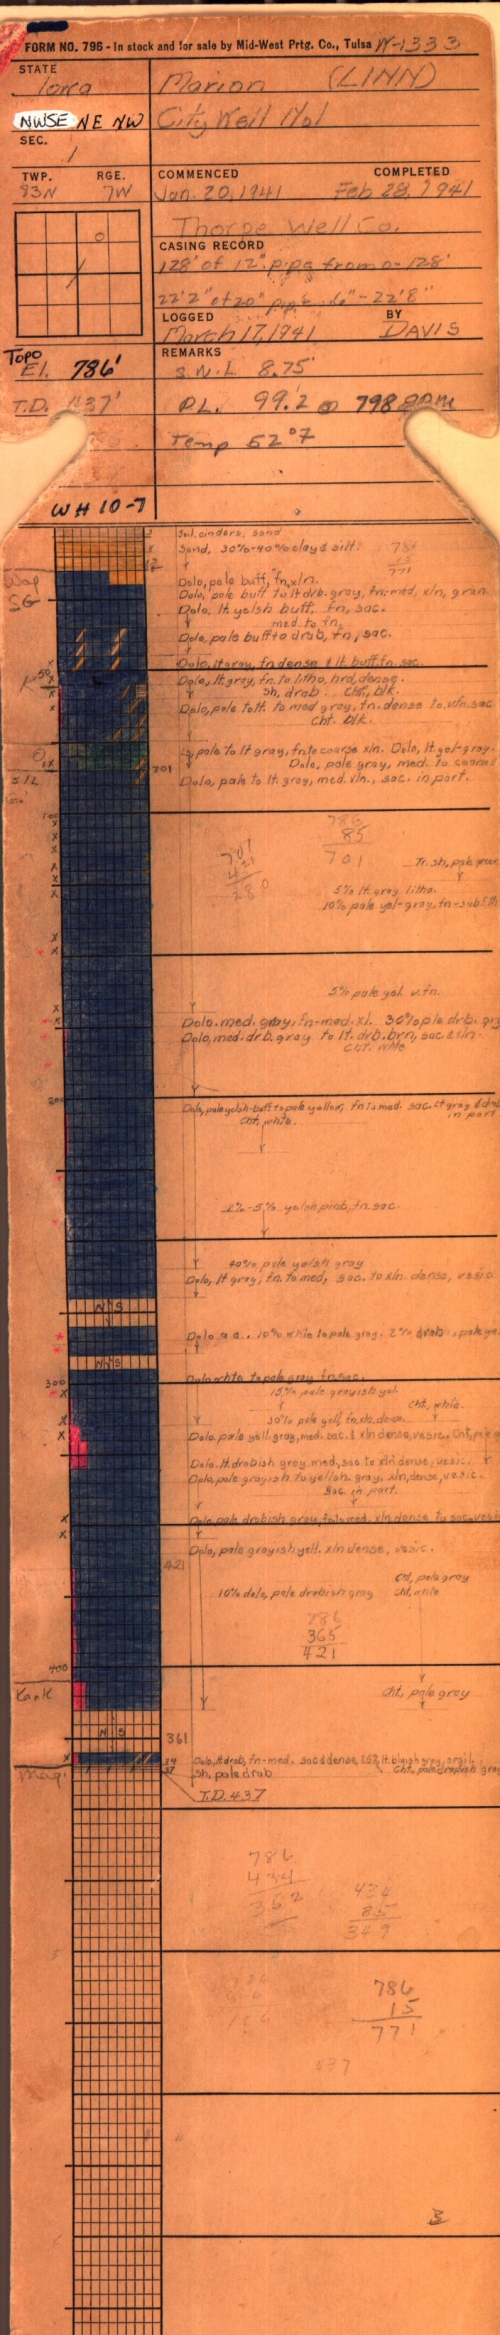 FORM NO. 796 - In stock and for sale by Mid-West Prtg. Co., Tulsa W-1333
STATE
Iowa
Marion (LINN)
NWSE NE NW
City Well No1
SEC.
1
TWP. RGE.
83N 7W
COMMENCED COMPLETED
Jan. 20, 1941 Feb 28, 1941
Thorpe Well Co.
CASING RECORD
128' of 12" pipe from 0-128'
22'2" of 20" pipe 6"-22'8"
LOGGED BY
March 17, 1941 DAVIS
REMARKS
Topo
El. 786'
S.W.L 8.75'
T.D. 437'
P.L. 99.2 @ 798 GPM
Temp 52°F
WH 10-7
Soil, cinders, sand
Sand, 30%-40% clay & silt.
771
Wap
SG
Dolo, pale buff, fn, xln.
Dolo, pale buff to lt drb. gray, fn-med, xln, gran.
Dolo, lt. yelsh buff, fn, sac.
med. to fn.
Dolo, pale buff to drab, fn, sac.
Dolo, lt gray, fn dense & lt. buff, fn, sac.
50
Dolo, lt gray, fn. to litho, hrd, dense.
Sh, drab. Cht, blk.
Dolo, pale to lt. to med gray, fn. dense to vfn. sac
Cht. blk.
Ls, pale to lt gray, fn to coarse xln. Dolo, lt yel-gray.
Dolo, pale gray, med. to coarse
701
SIL
Dolo, pale to lt. gray, med. xln., sac. in part.
100
786
85
701
701
421
280
Tr. sh, pale green
5% lt. gray litho.
10% pale yel-gray, fn-sub lith
5% pale yel. v. fn.
Dolo. med. gray, fn-med. xl. 30% ple drb. gry
Dolo, med. drb. gray to lt. drb. brn, sac. & xln.
Cht. white
200
Dolo, pale yelsh-buff to pale yellow, fn to med. sac. Lt gray & drab
in part
Cht, white.
2%-5% yelsh pink, fn. sac.
40% pale yelsh gray
Dolo, lt gray, fn. to med, sac. to xln. dense, vesic
N S
Dolo a.a., 10% white to pale gray. 2% drab
N S
300
Dolo white to pale gray fn. sac.
15% pale grayish yel.
Cht, white.
30% pale yell, fn. xln. dense
Dolo, pale yell. gray, med. sac. & xln dense, vesic. Cht,
Dolo. lt. drabish gray med, sac to xln dense, vesic.
Dolo, pale grayish to yellsh. gray, xln, dense, vesic.
sac. in part.
Dolo, pale drabish gray, fn to med. xln dense to sac. vesi
Dolo, pale grayish yell. xln dense, vesic.
421
Cht, pale gray
10% dolo, pale drabish gray Cht, white
786
365
421
400
Kank
Cht, pale gray
N S
361
34
Dolo, lt drab, fn-med. sac & dense, 25% lt. bluish gray, argil.
37
Maq.
Sh, pale drab Cht, pale drabish gray
T.D. 437
786
434
352
434
85
349
786
15
771
437
B